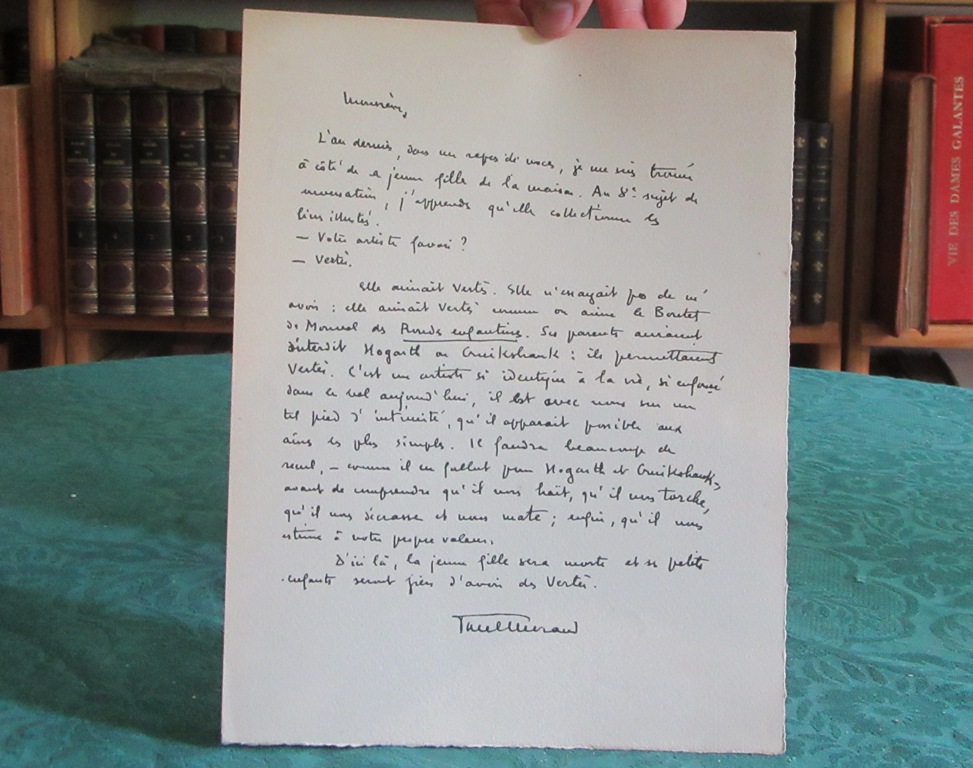 Monsieur,
L'an dernier, dans un repas de noces, je me suis trouvé
à côté de la jeune fille de la maison. Au 8e sujet de
conversation, j'apprends qu'elle collectionne les
livres illustrés.
— Votre artiste favori ?
— Vertès.
Elle aimait Vertès. Elle n'essayait pas de
avoir : elle aimait Vertès comme on aime le Boutet
de Monvel des Rondes enfantines. Ses parents auraient
interdit Hogarth ou Cruikshank : ils permettaient
Vertès. C'est un artiste si identique à la vie, si enfoncé
dans le bal aujourd'hui, il est avec nous sur un
tel pied d'intimité, qu'il apparait possible aux
âmes les plus simples. Il faudra beaucoup de
recul, — comme il en fallut pour Hogarth et Cruikshank,
avant de comprendre qu'il nous hait, qu'il nous torche,
qu'il nous décrasse et nous mate ; enfin, qu'il nous
estime à notre propre valeur.
D'ici là, la jeune fille sera morte et ses petits
enfants seront fiers d'avoir des Vertès.
Paul Morand
VIE DES DAMES GALANTES